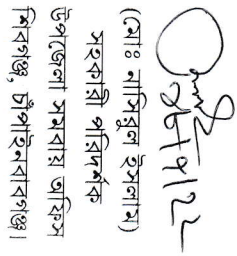 (মোঃ নাসিবুল ইসলাম)
সহকারী পরিদর্শক
উপজেলা সমবায় অফিস
শিবগঞ্জ, চাঁপাইনবাবগঞ্জ।